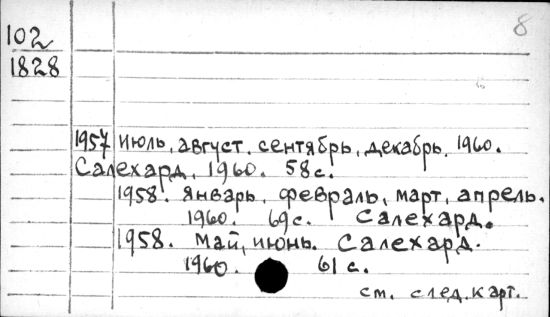 8
102
1828
1957 июль, август, сентябрь, декабрь. 1960.
Салехард, 1960. 58с.
1958. январь, февраль, март, апрель.
1960. 69с. Салехард.
1958. май, июнь. Салехард.
1960. 61 с.
см. след. карт.